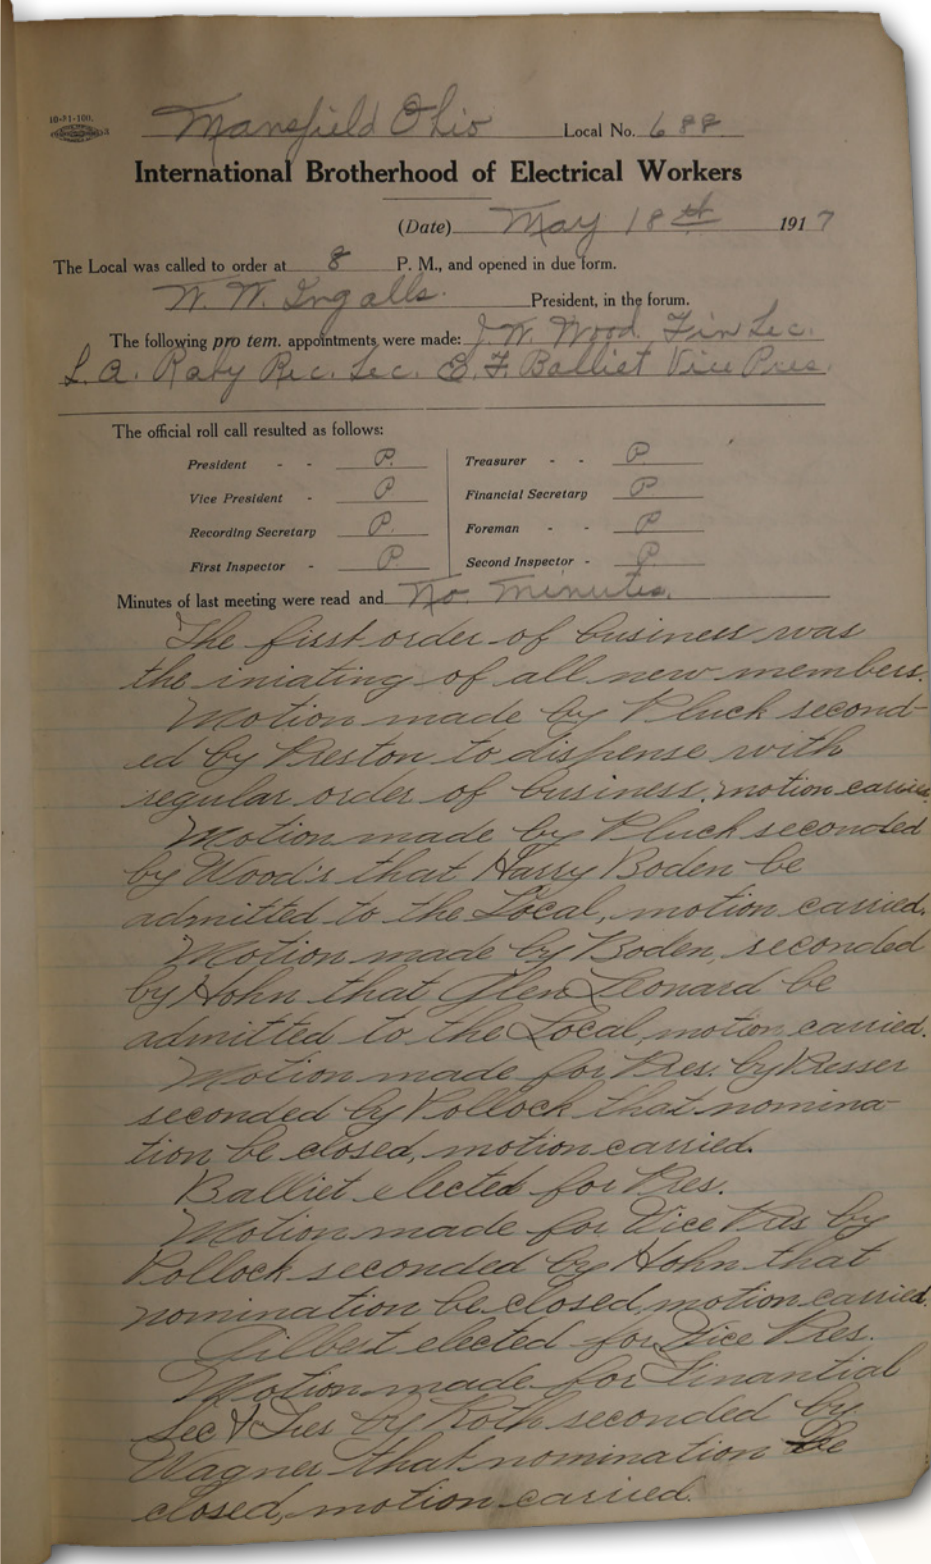 10-21-100.
Mansfield Ohio Local No. 688
International Brotherhood of Electrical Workers
(Date) May 18th 1917
The Local was called to order at 8 P. M., and opened in due form.
W. W. Ingalls. President, in the forum.
The following pro tem. appointments were made: J. W. Wood, Fin Sec.
L. A. Raby Rec. Sec. E. F. Balliet Vice Pres.
The official roll call resulted as follows:
President - - P. Treasurer - - P
Vice President - P Financial Secretary P
Recording Secretary P. Foreman - - P
First Inspector - P. Second Inspector - P.
Minutes of last meeting were read and No. minutes.
The first order of business was
the iniating of all new members.
Motion made by Pluck second-
ed by Preston to dispense with
regular order of business. motion carried.
Motion made by Pluck seconded
by Wood's that Harry Boden be
admitted to the Local, motion carried.
Motion made by Boden, seconded
by Hohn that Glen Leonard be
admitted to the Local, motion carried.
Motion made for Pres. by Resser
seconded by Pollock that nomina-
tion be closed, motion carried.
Balliet elected for Pres.
Motion made for Vice Pres by
Pollock seconded by Hohn that
nomination be closed, motion carried.
Gilbert elected for Vice Pres.
Motion made for Financial
Sec & Tres by Roth seconded by
Wagner that nomination be
closed, motion carried.